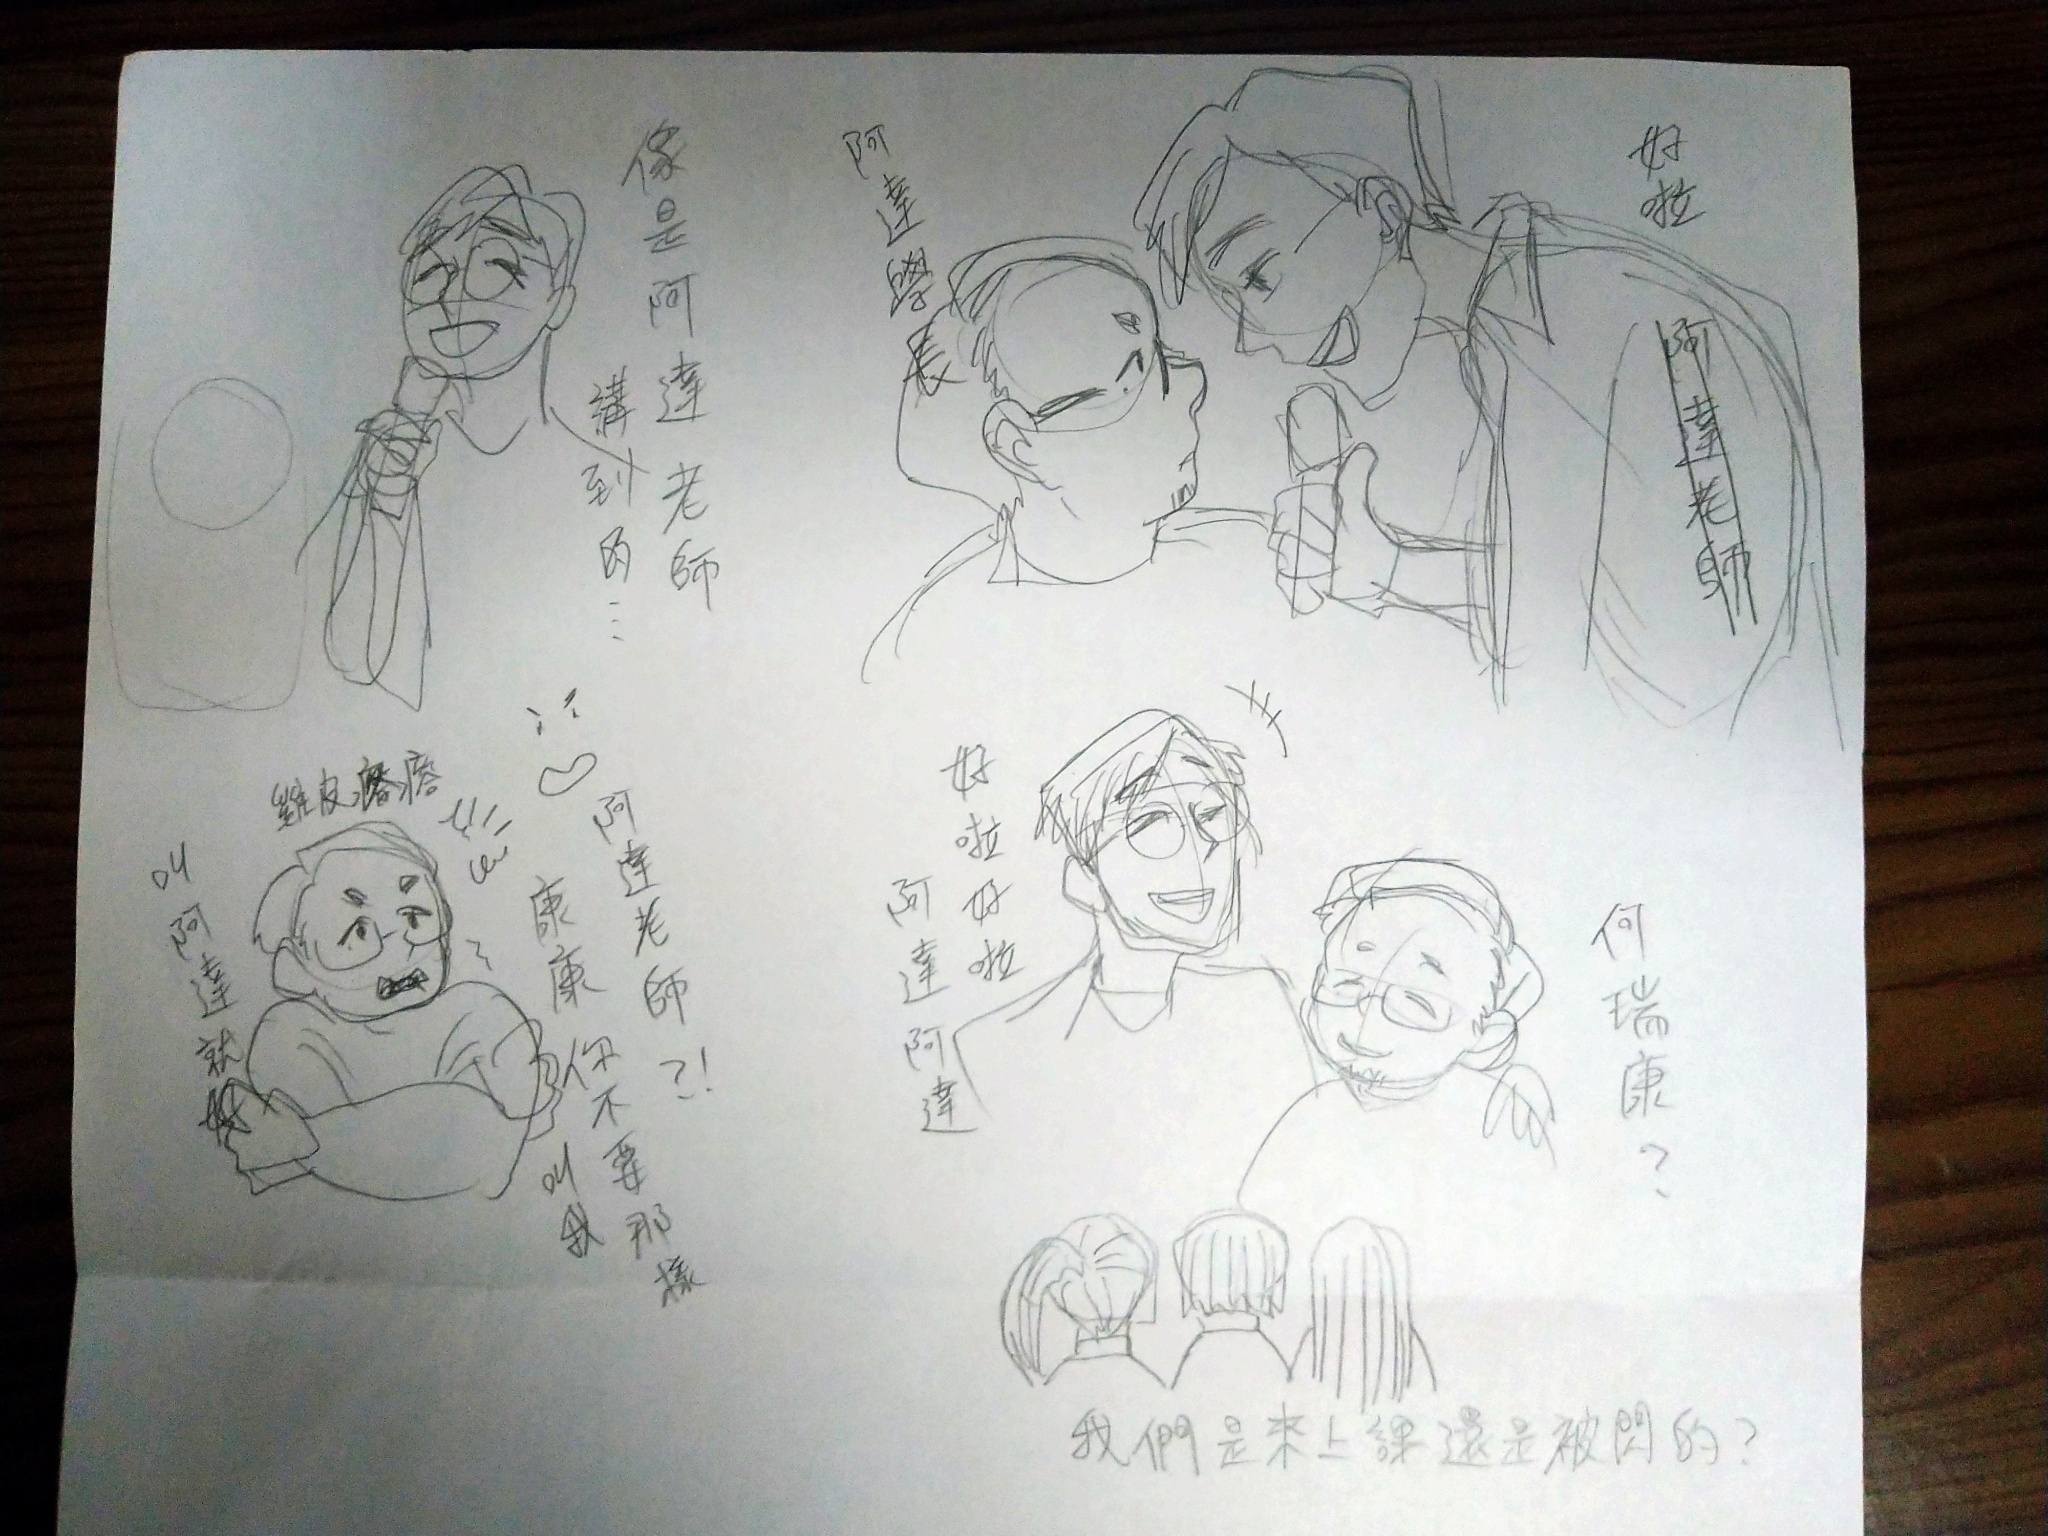 像是阿達老師
講到的…
阿達老師？！
康康你不要那樣
叫我
雞皮疙瘩
叫阿達就好
好啦
阿達老師
阿達學長
何瑞康？
好啦好啦
阿達阿達
我們是來上課還是被閃的？